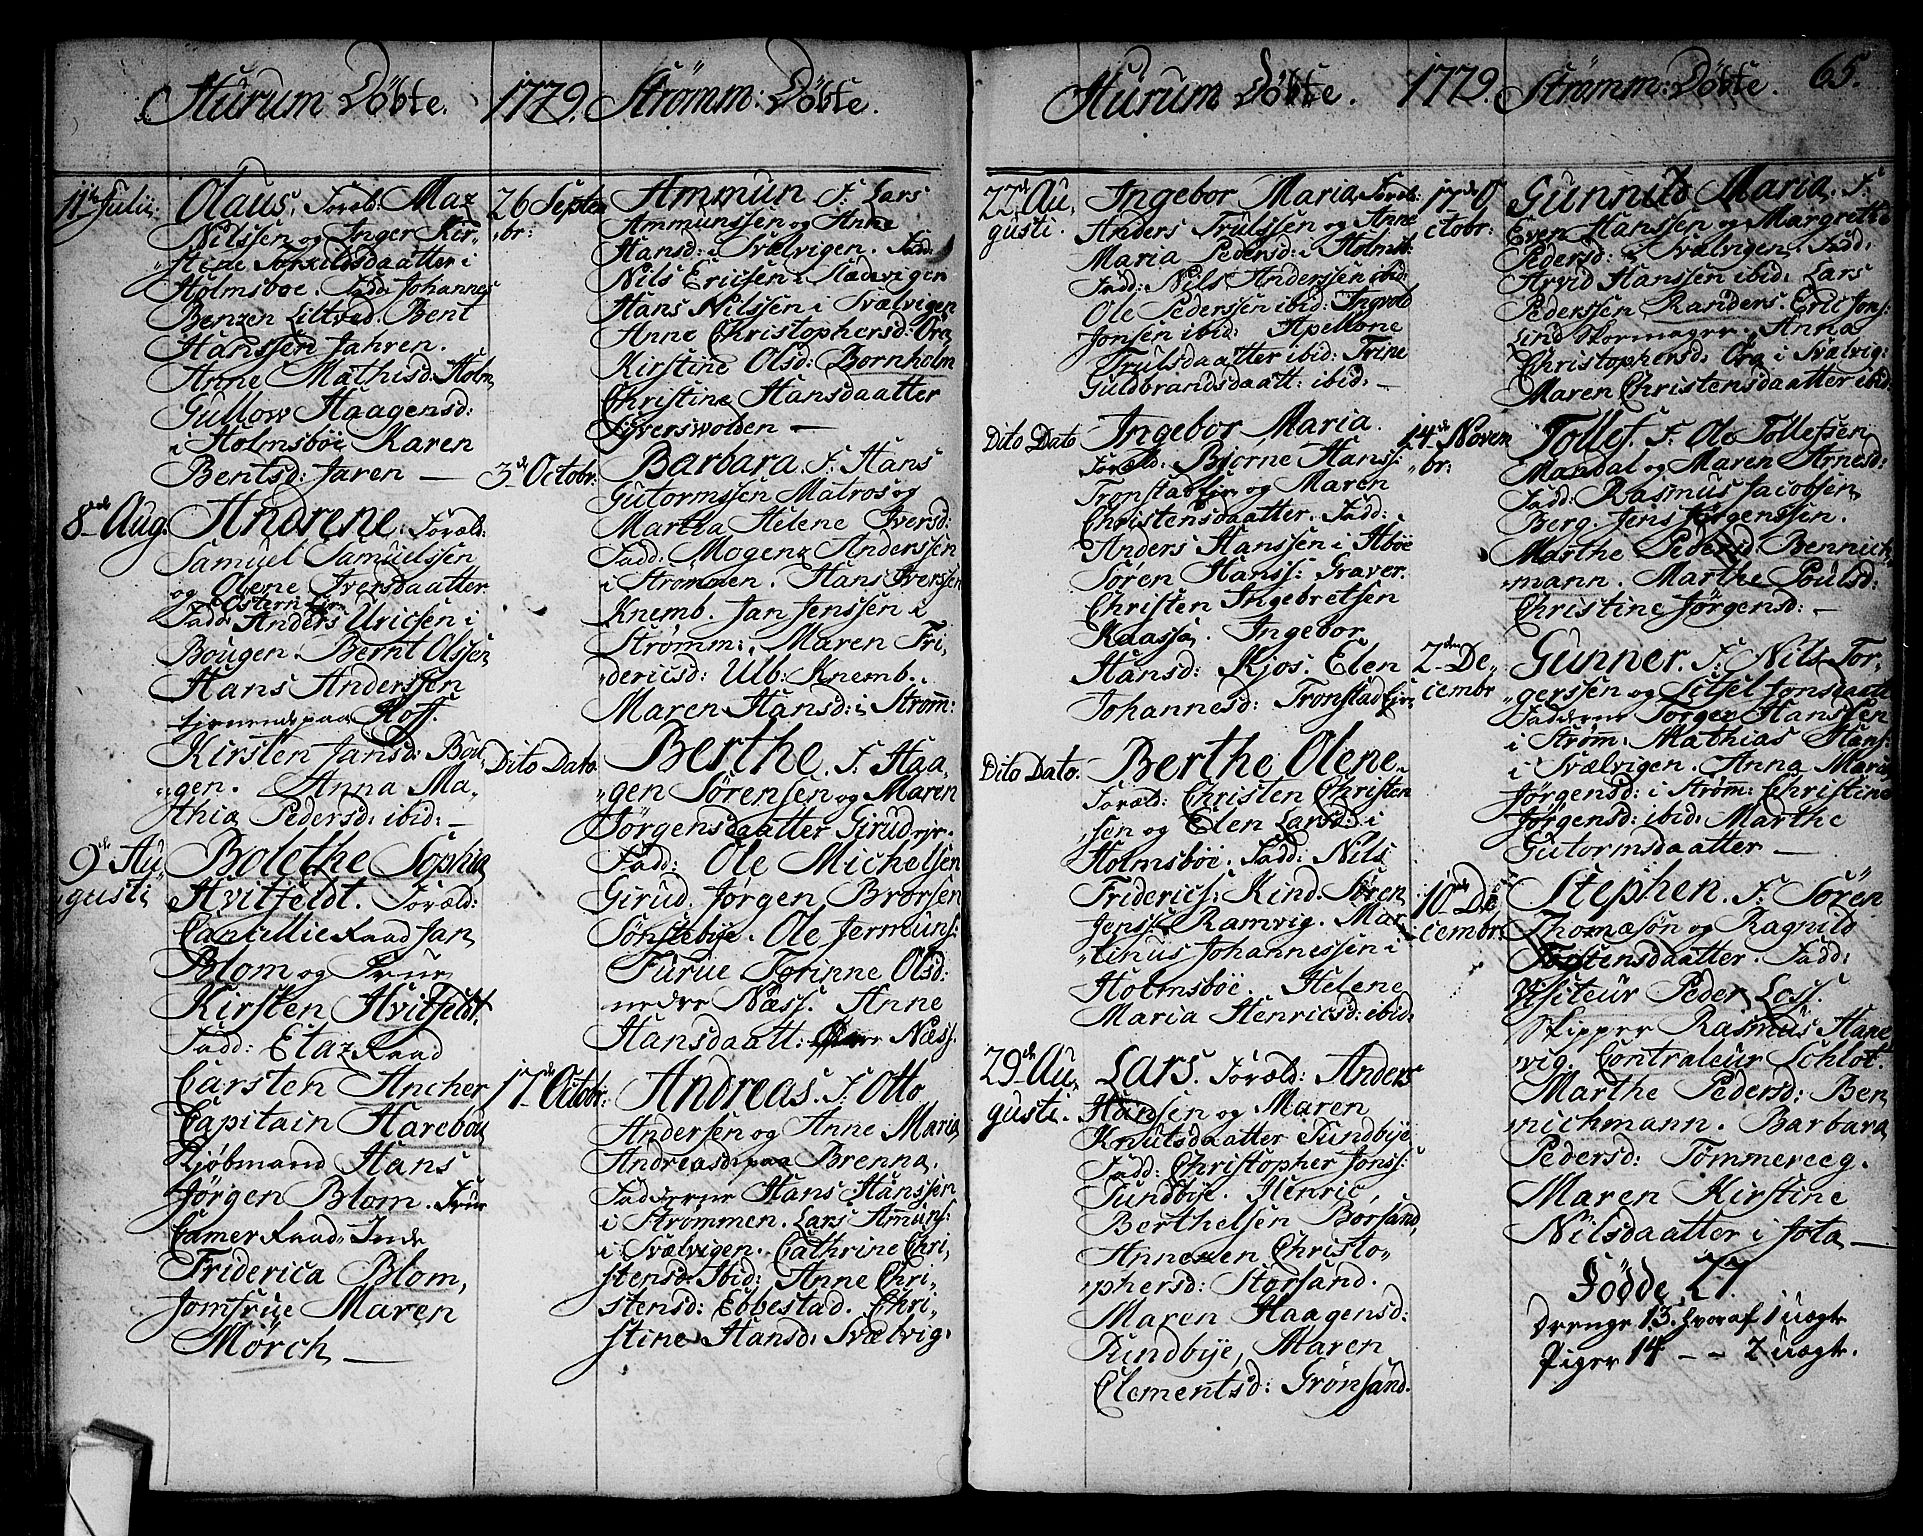 Hurum Döbte. 1779. Strömm: Döbte.
11te Julii
Olaus. Foræl: Maz
Nilssen og Inger Kir-
stine Torkildsdaatter i
Holmsboe. Fadd: Johannes
Benzen Liltved. Bent
Hanssen Jahren.
Anne Mathisd: Holm,
Gullow Haagensd:
i Holmsböe Karen
Bentsd: Jaren —
8de Aug.
Andrene. Foræld:
Samuel Samuelssen
og Olene Iversdaatter
Östern Eje.
Fadd: Anders Uricsen i
Bougen. Bernt Olssen
Hans Anderssen
tienende paa Hoff.
Kirsten Jansd: Bou,
"gen. Anna Ma,
thia Pedersd: ibid: —
9de Au,
gusti
Bolethe Sophia
Hvitfeldt. Foræld:
Cancellie Raad Jan
Blom og Frue
Kirsten Hvitfeldt.
Fadd: Etaz Raad
Carsten Ancher
Capitain Harebou
Kjöbmand Hans
Jörgen Blom. Frue
Camer Raad Inde
Friderica Blom,
Jomfrue Maren
Mörch —
26 Septem
br:
Ammun F: Lars
Ammunssen og Anne
Hansd: i Svælvigen. Fadd:
Nils Ericsen i Sædevigen
Hans Nilssen i Svælvigen
Anne Christophersd: Öra,
Kirstine Olsd: Bornholm
Christine Hansdaatter
Syverswolden —
3de Octobr:
Barbara. F: Hans
Gutormssen Matros og
Martha Helene Iversd:
Fadd: Mogenz Anderssen
i Strömmen. Hans Iverssen
Knemb. Jan Jenssen i
Strömm: Maren Fri,
dericsd: Ulb: Knemb.
Maren Hansd: i Strömm:
Dito Dato.
Berthe. F: Haa,
"gen Sörensen og Maren
Jörgensdaatter Girud eje.
Fadd: Ole Michelsen
Girud. Jörgen Brorsen
Sönsteby. Ole Jermuns:
Furue Torinne Olsd:
nedre Næss. Anne
Hansdaatt: Næss.
17de Octobr:
Andreas. F: Otto
Andersen og Anne Maria
Andreasd: paa Brenna.
Fadderne Hans Hanssen
i Strömmen. Lars Amuns:
i Svælvigen. Cathrine Chri,
stensd: Ibid: Anne Chri,
stensd: Ebbestad. Chri,
stine Hansd: Svælvig:
Hurum Döbte. 1779. Strömm: Döbte. 65.
22de Au,
gusti.
Ingebor Maria Foræl:
Anders Trulssen og Anne
Maria Pedersd: i Holmsb:
Fadd: Nils Anderssen ibid:
Ole Pederssen ibid: Ingvold
Jonsen ibid: Apellone
Trulsdaatter ibid: Trine
Guldbrandsdaatt: ibid: —
Dito Dato
Ingebor Maria.
Foræld: Bjorne Hans:
Tronstad Eje og Maren
Christensdaatter. Fadd:
Anders Hanssen i Sböe
Sören Hanss: Graver.
Christen Ingebretsen
Kaassa. Ingebor
Hansd: Kjos. Elen
Johannesd: Tronstad Eje,
Dito Dato.
Berthe Olene.
Foræld: Christen Christen
sen og Elen Larsd: i
Holmsböe. Fadd: Nils
Frideriss: Kind. Sören
Jenss: Ramvig. Mar,
"tinus Johannessen i
Holmsböe. Helene
Maria Henricsd: ibid:
29de Au,
gusti.
Lars. Foræld: Anders
Hansen og Maren
Knutsdaatter Tundbye
Fadd: Christopher Jonss:
Tundbye. Henric,
Berthelsen Borsand,
Anne Christo"
phersd: Storsand.
Maren Haagensd:
Tundbye, Maren
Clementsd: Grönsand.
17de O
ctobr:
Gunnild Maria. F:
Even Hanssen og Margrethe
Pedersd: i Svælvigen. Fadd:
Arvid Hanssen ibid: Lars
Pederssen Randers Eric Jons:
Lind Skomager. Anna
Christophersd: Öra i Svælvig:
Maren Christensdaatter ibid:
14de Novem
br:
Tollef. F: Ole Tollefsen
Mandal og Maren Arnesd:
Fadd: Rasmus Jacobsen
Berg. Jens Jörgenssen.
Marthe Pedersd: Bennich
mann. Marthe Poulsd:
Christine Jörgensd: —
2den De,
cembr
Gunner. F: Nils Tor,
gerssen og Litsel Jonsdaatt
Fadderne Torger Hanssen
i Ström: Mathias Hans:
i Svælvigen. Anna Maria
Jörgensd: i Ström: Christine
Jörgensd: ibid: Marthe
Gutormsdaatter —
10de De,
cembr:
Stephen. F: Sören
Thomæsön og Ragnild
Tostensdaatter. Fadd:
Visiteur Peder Loss.
Skipper Rasmus Hane
vig. Contraleur Schlot.
Marthe Pedersd: Ben
nichmann. Barbara
Pedersd: Tömmereeg.
Maren Kirstine
Nilsdaatter i Jota —
Födde 27.
Drenge 13. hvoraf 1 uægte
Piger 14 — — 2 uægte.